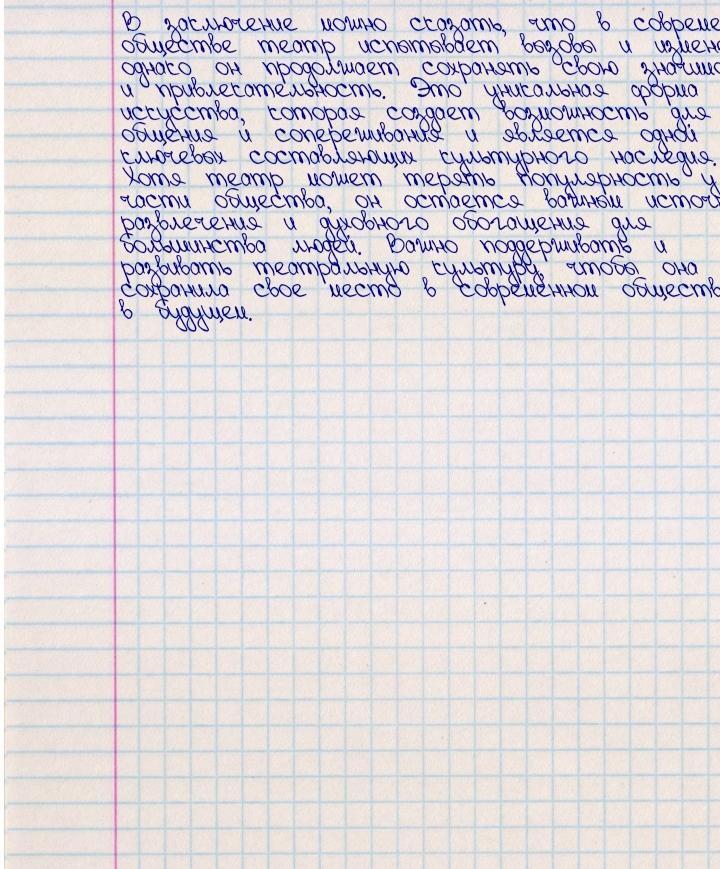 В заключение можно сказать, что в совреме
обществе театр испытывает вызовы и измене
однако он продолжает сохранять свою значимо
и привлекательность. Это уникальная форма
искусства, которая создает возможность для
общения и сопереживания и является одной
ключевых составляющих культурного наследия.
Хотя театр может терять популярность у
части общества, он остается важным источ
развлечения и духовного обогащения для
большинства людей. Важно поддерживать и
развивать театральную культуру, чтобы она
сохранила свое место в современном обществ
в будущем.